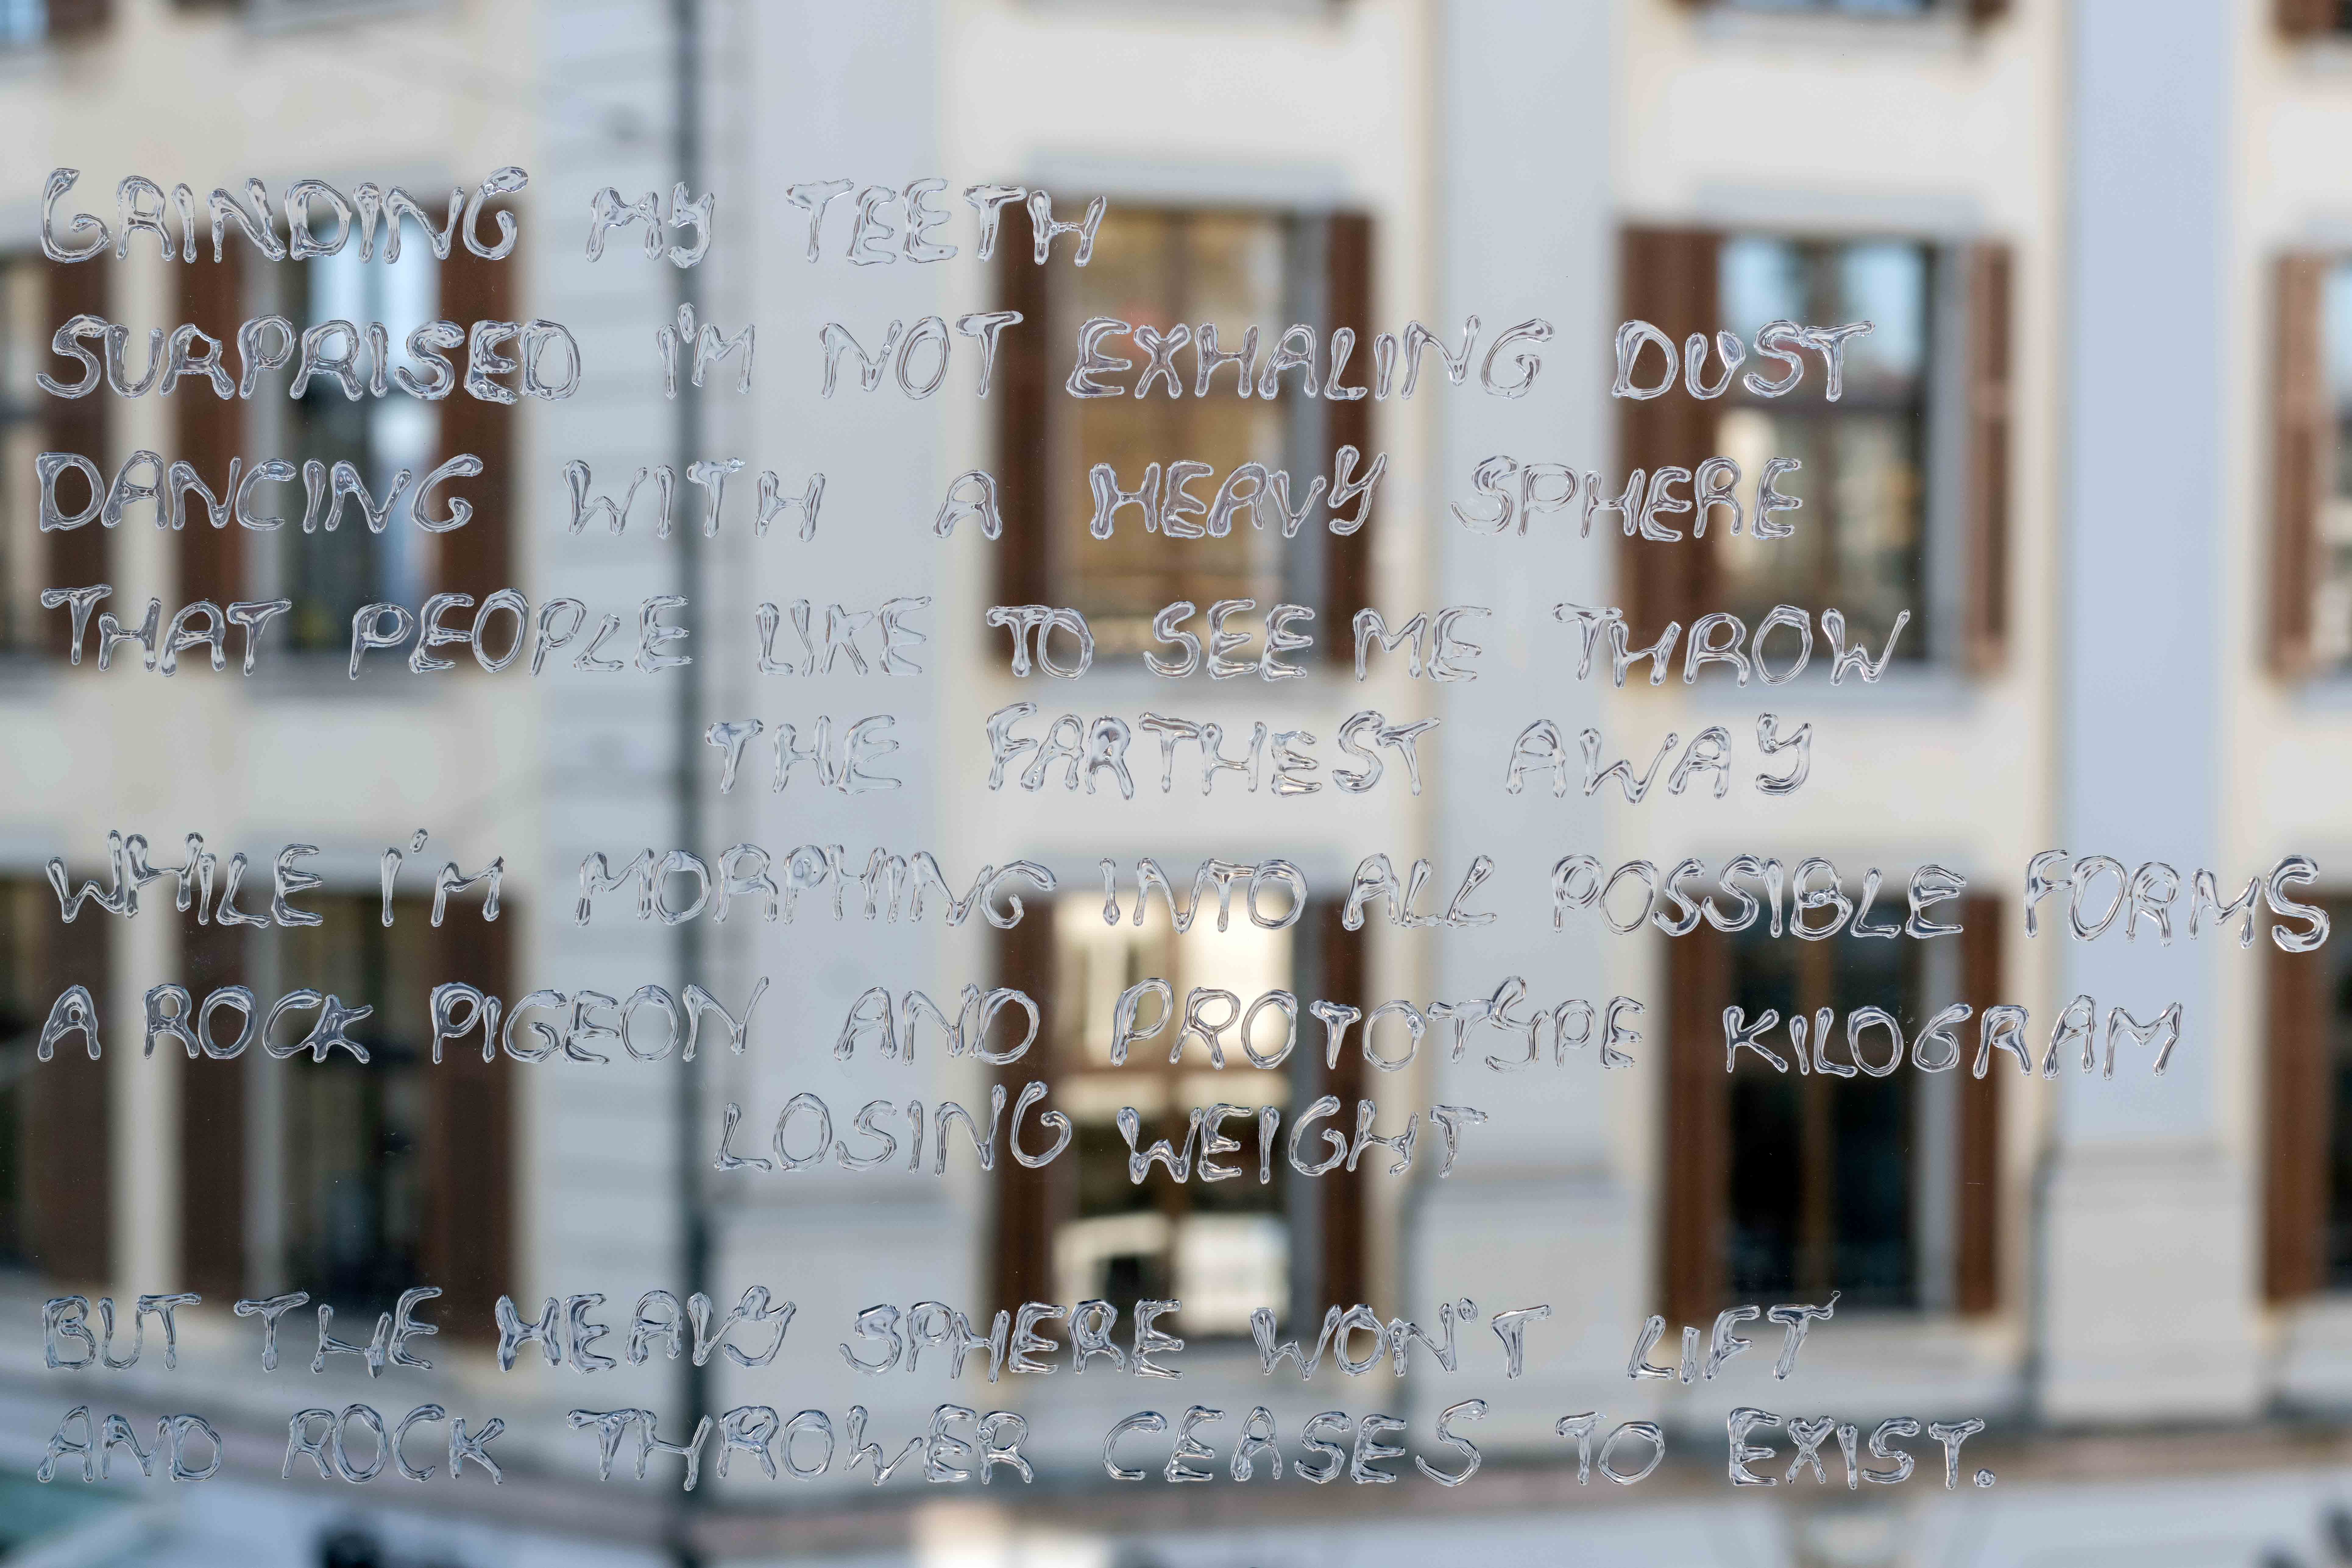 GRINDING MY TEETH
SURPRISED I'M NOT EXHALING DUST
DANCING WITH A HEAVY SPHERE
THAT PEOPLE LIKE TO SEE ME THROW
THE FARTHEST AWAY
WHILE I'M MORPHING INTO ALL POSSIBLE FORMS
A ROCK PIGEON AND PROTOTYPE KILOGRAM
LOSING WEIGHT
BUT THE HEAVY SPHERE WON'T LIFT
AND ROCK THROWER CEASES TO EXIST.